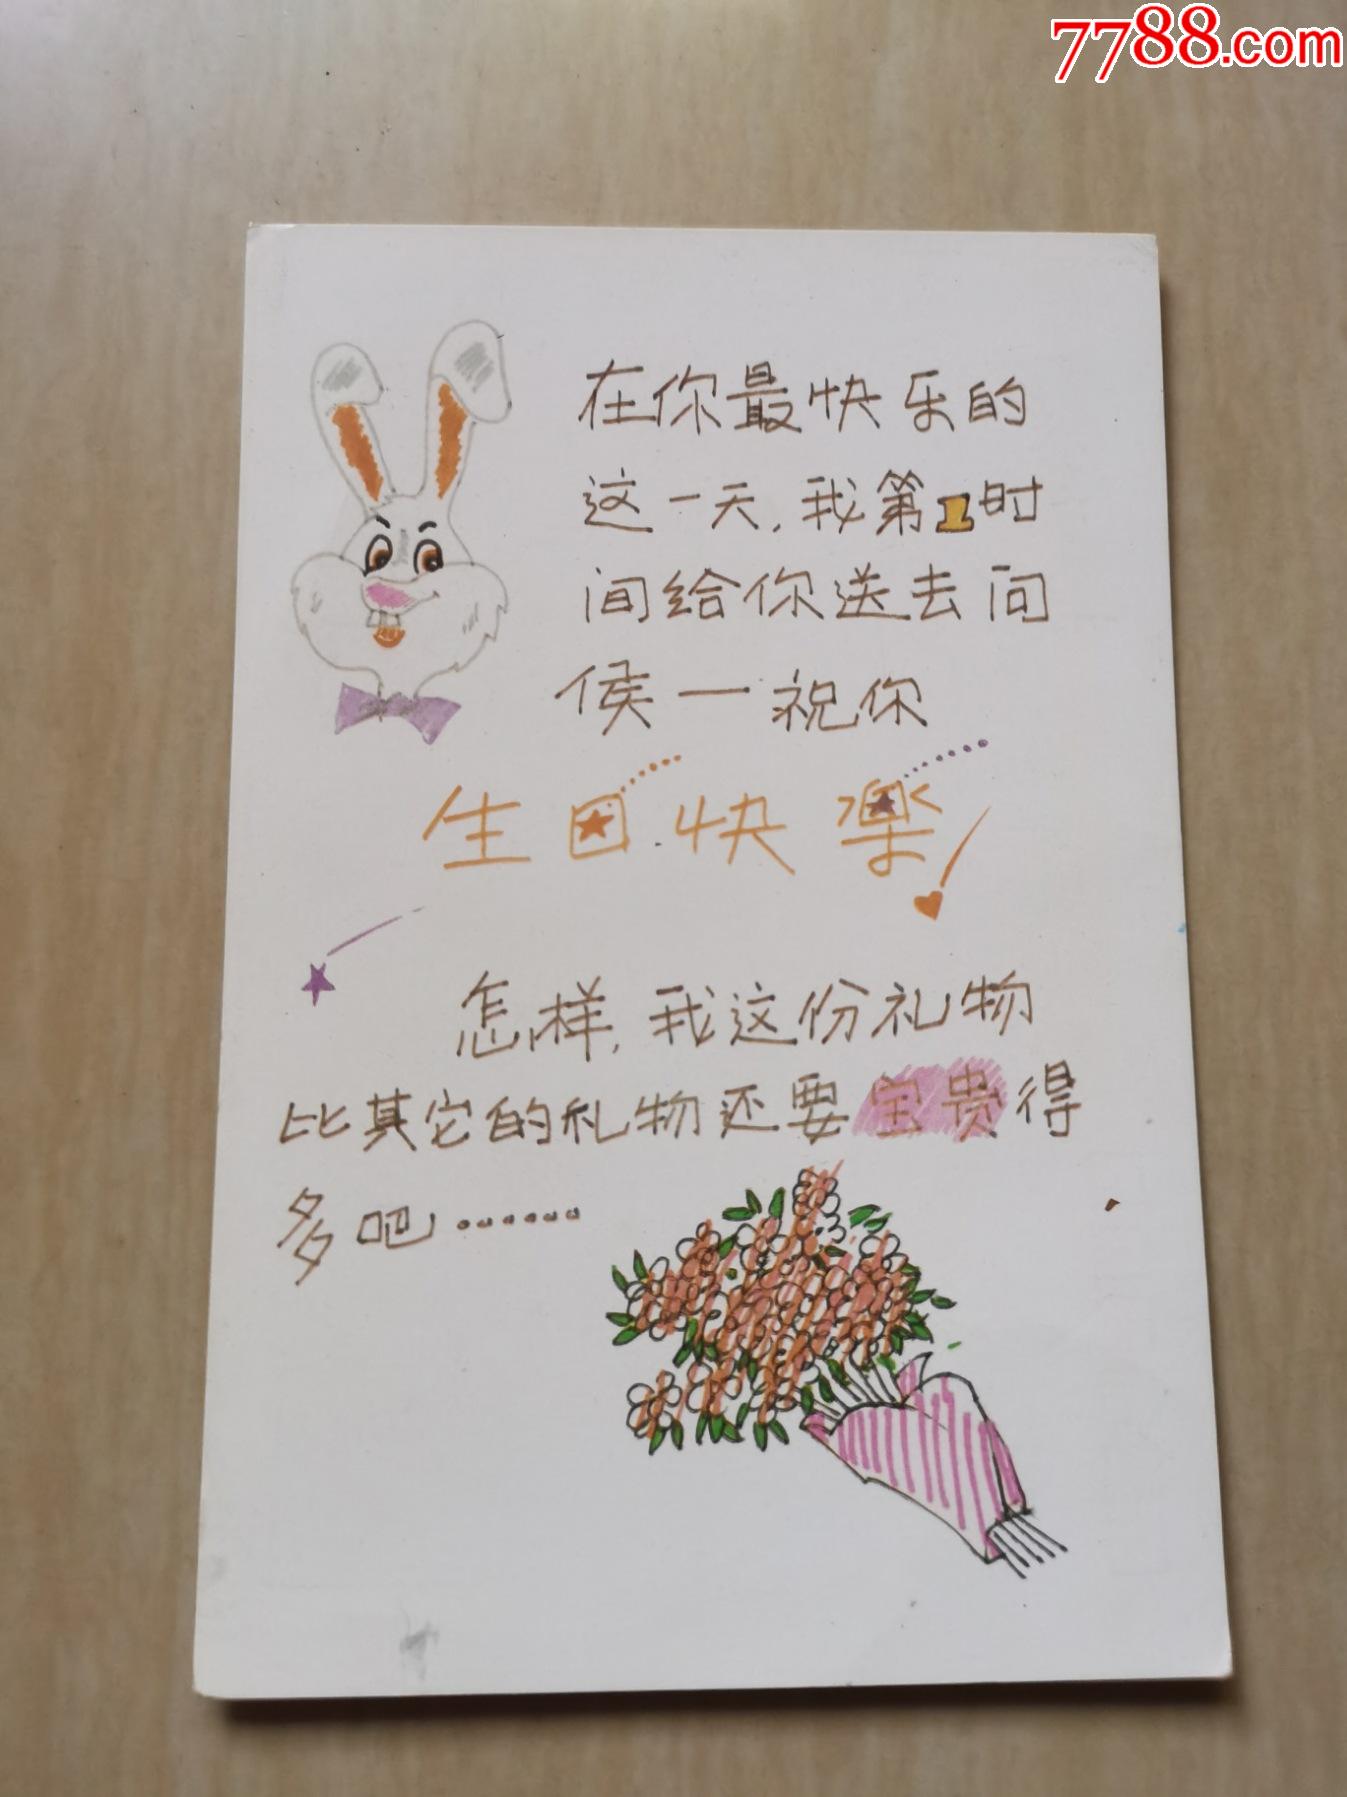 7788.com
在你最快乐的
这一天,我第1时
间给你送去问
侯一祝你
生日快樂!
怎样,我这份礼物
比其它的礼物还要宝贵得
多吧……